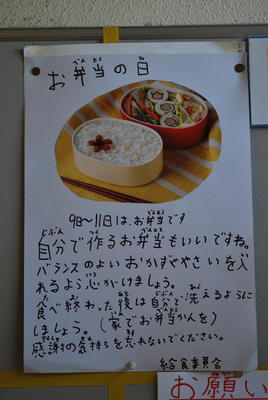 お弁当の日
べんとう
ひ
9日～11日は、お弁当です
べんとう
自分で作るお弁当もいいですね。
じぶん
つく
べんとう
バランスのよいおかずややさいを入
れるよう心がけましょう。
食べ終わった後は自分で洗えるように
じぶん
しましょう。(家でお弁当かんを)
感謝の気持ちを忘れないでください。
給食委員会
お願い